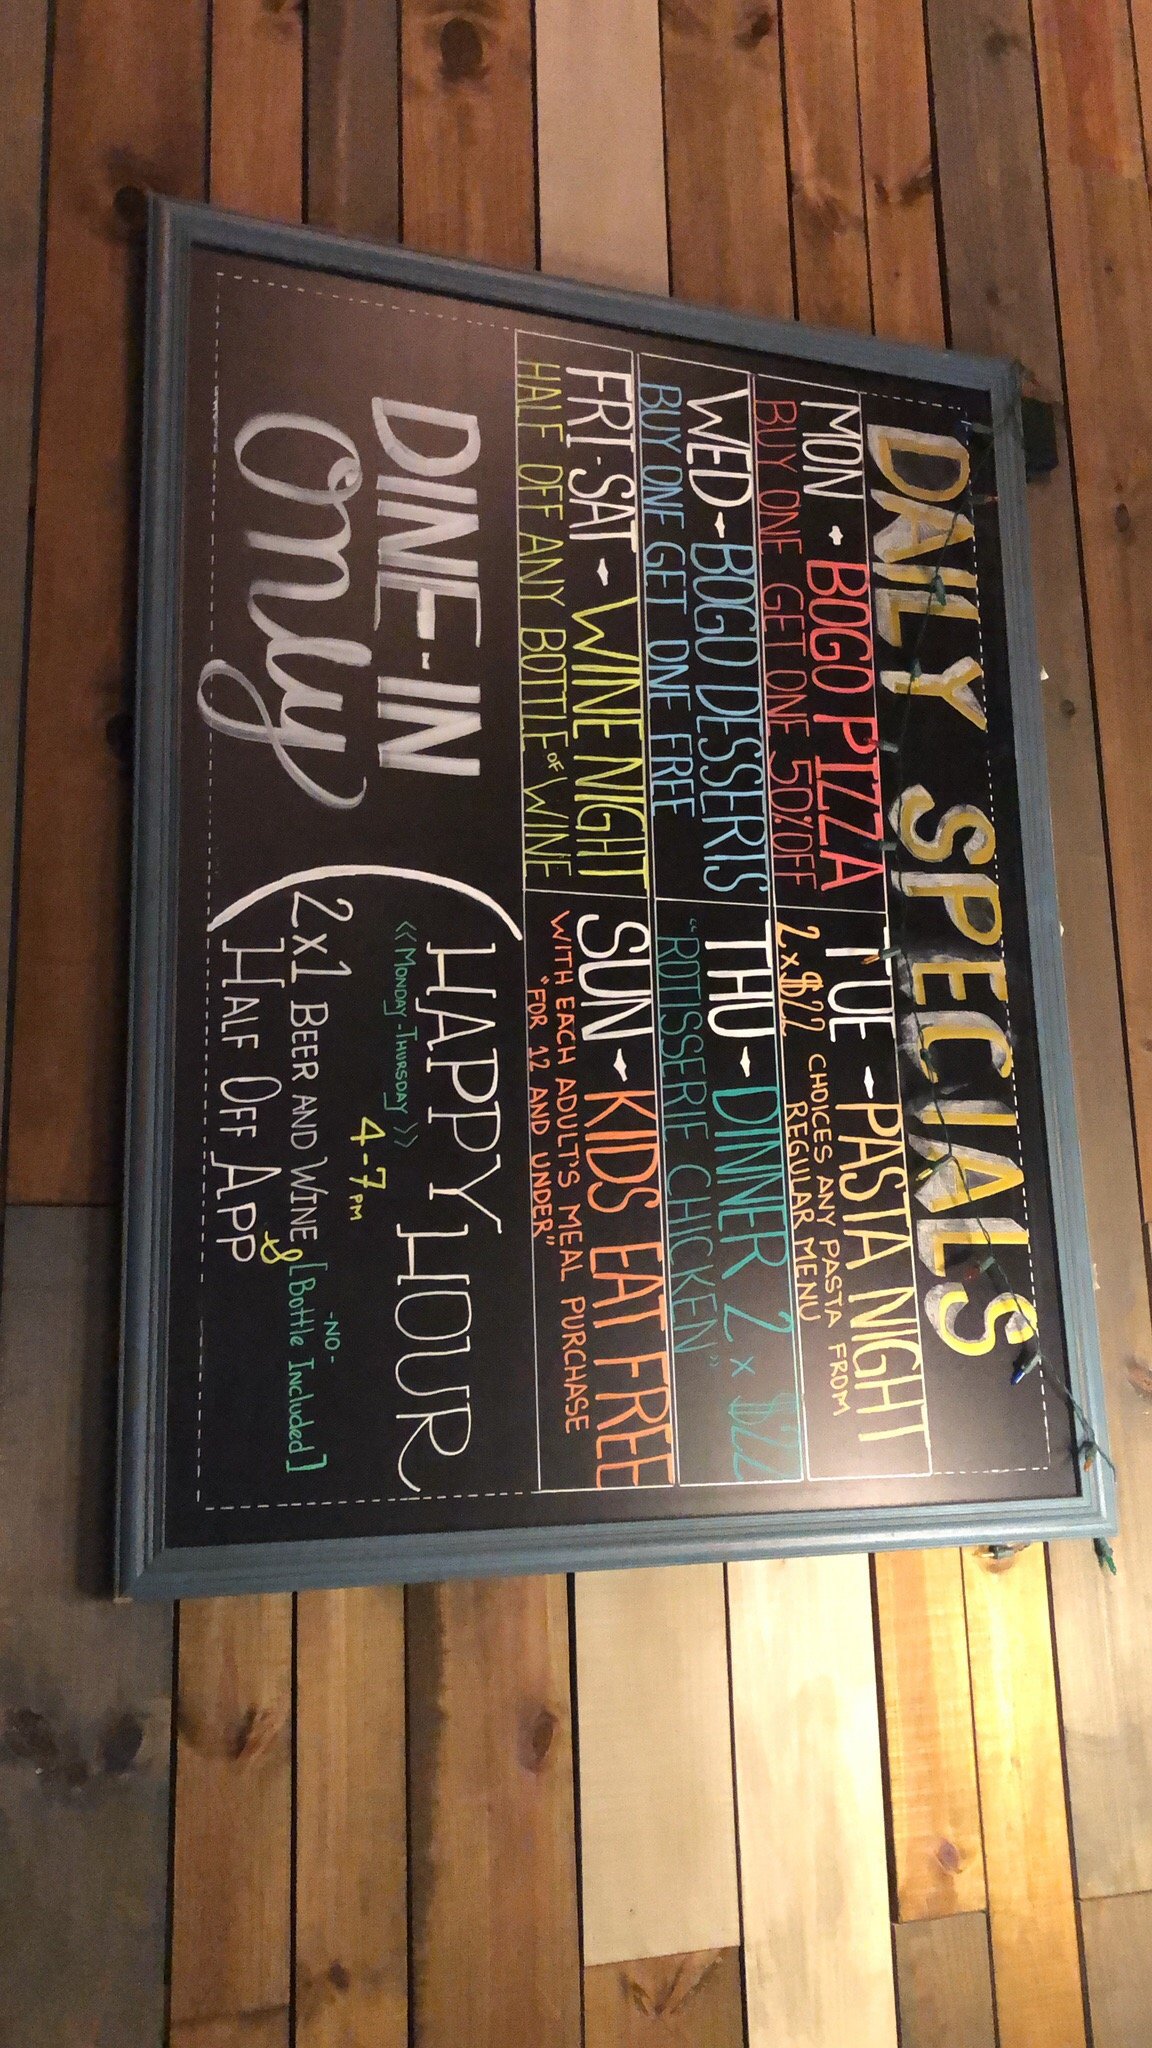 DAILY SPECIALS
MON - BOGO PIZZA
BUY ONE GET ONE 50% OFF
TUE - PASTA NIGHT
2 x $22 CHOICES ANY PASTA FROM
REGULAR MENU
WED - BOGO DESSERTS
BUY ONE GET ONE FREE
THU - DINNER 2 x $22
"ROTISSERIE CHICKEN"
FRI-SAT - WINE NIGHT
HALF OFF ANY BOTTLE OF WINE
SUN - KIDS EAT FREE
WITH EACH ADULT'S MEAL PURCHASE
"FOR 12 AND UNDER"
DINE-IN
Only
HAPPY HOUR
<< MONDAY-THURSDAY >>
4-7 PM
2x1 BEER AND WINE [Bottle Included]
-NO-
&
HALF OFF APP